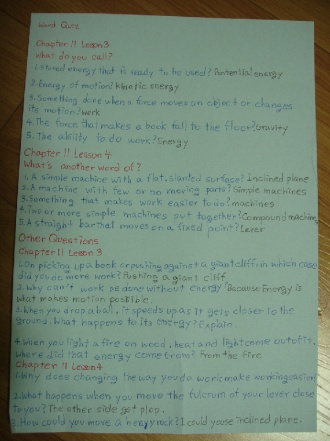 Word Quiz
Chapter 11 Lesson 3
What do you call?
1. Stored energy that is ready to be used? Pontential energy
2. Energy of motion? Kinetic energy
3. Something done when a force moves an object or changes
its motion? Work
4. The force that makes a book fall to the floor? Gravity
5. The ability to do work? Energy
Chapter 11 Lesson 4
What's another word of?
1. A simple machine with a flat, slanted surface? Inclined plane
2. A machine with few or no moving parts? Simple machines
3. Something that makes work easier to do? machines
4. Two or more simple machines put together? Compound machine
5. A straight bar that moves on a fixed point? Lever
Other Questions
Chapter 11 Lesson 3
1. In picking up a book or pushing against a giant cliff, in which case
did you do more work? Pushing a giant cliff
2. Why can't work be done without energy? Because Energy is
what makes motion possible.
3. When you drop a ball, it speeds up as it gets closer to the
ground. What happens to its energy? Explain.
4. When you light a fire on wood, heat and light come out of it.
Where did that energy come from? From the fire
Chapter 11 Lesson 4
1. Why does changing the way you do work make working easier
2. What happens when you move the fulcrum of your lever close
to you? The other side get plop.
3. How could you move a heavy rock? I could yoase inclined plane.